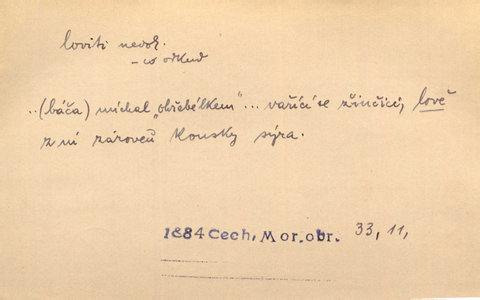 loviti nedok.
- co odkud
..(báča) míchal „obřebélkem"... vařící se žinčici, lově
z ní zároveň kousky sýra.
1884 Čech, Mor. obr. 33, 11,